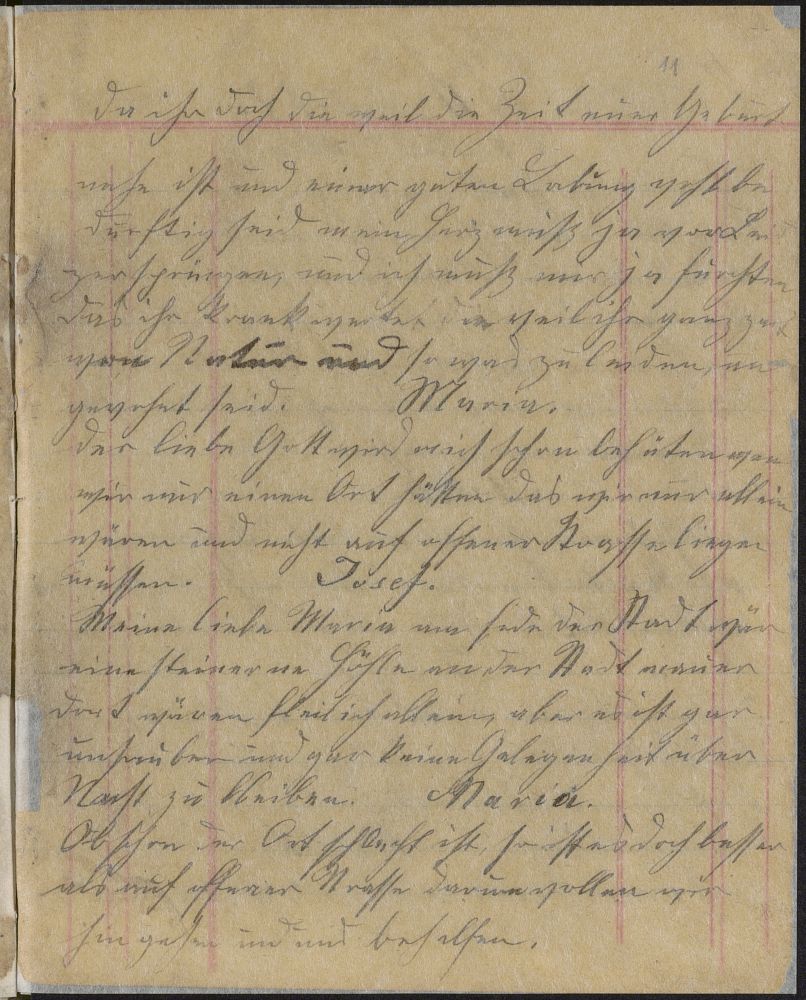 11
da ihr doch die weil die Zeit eurer Geburt
nahe ist und einer guten Labung gest be
durftig seid mein Herz muß ja vor Lei
zerspringen, und ich muß mir ja furchten
das ihr krank werdet die weil ihr ganz zart
von Natur und so was zu leiden, un
gewohnt seid. Maria.
Der liebe Gott wird mich schon behüten wan
wir nur einen Ort hätten das wir nur allein
wären und nicht auf offener Strasse liegen
müssen. Josef.
Meine liebe Maria am Ende der Stadt wär
eine steinerne Höhle an der Stadt mauer
dort wären freilich allein, aber es ist gar
unsauber und gar keine Gelegenheit über
Nacht zu bleiben. Maria.
Obschon der Ort schlecht ist, so ist es doch besser
als auf offener Strasse darum wollen wir
hin gehen und uns behelfen.